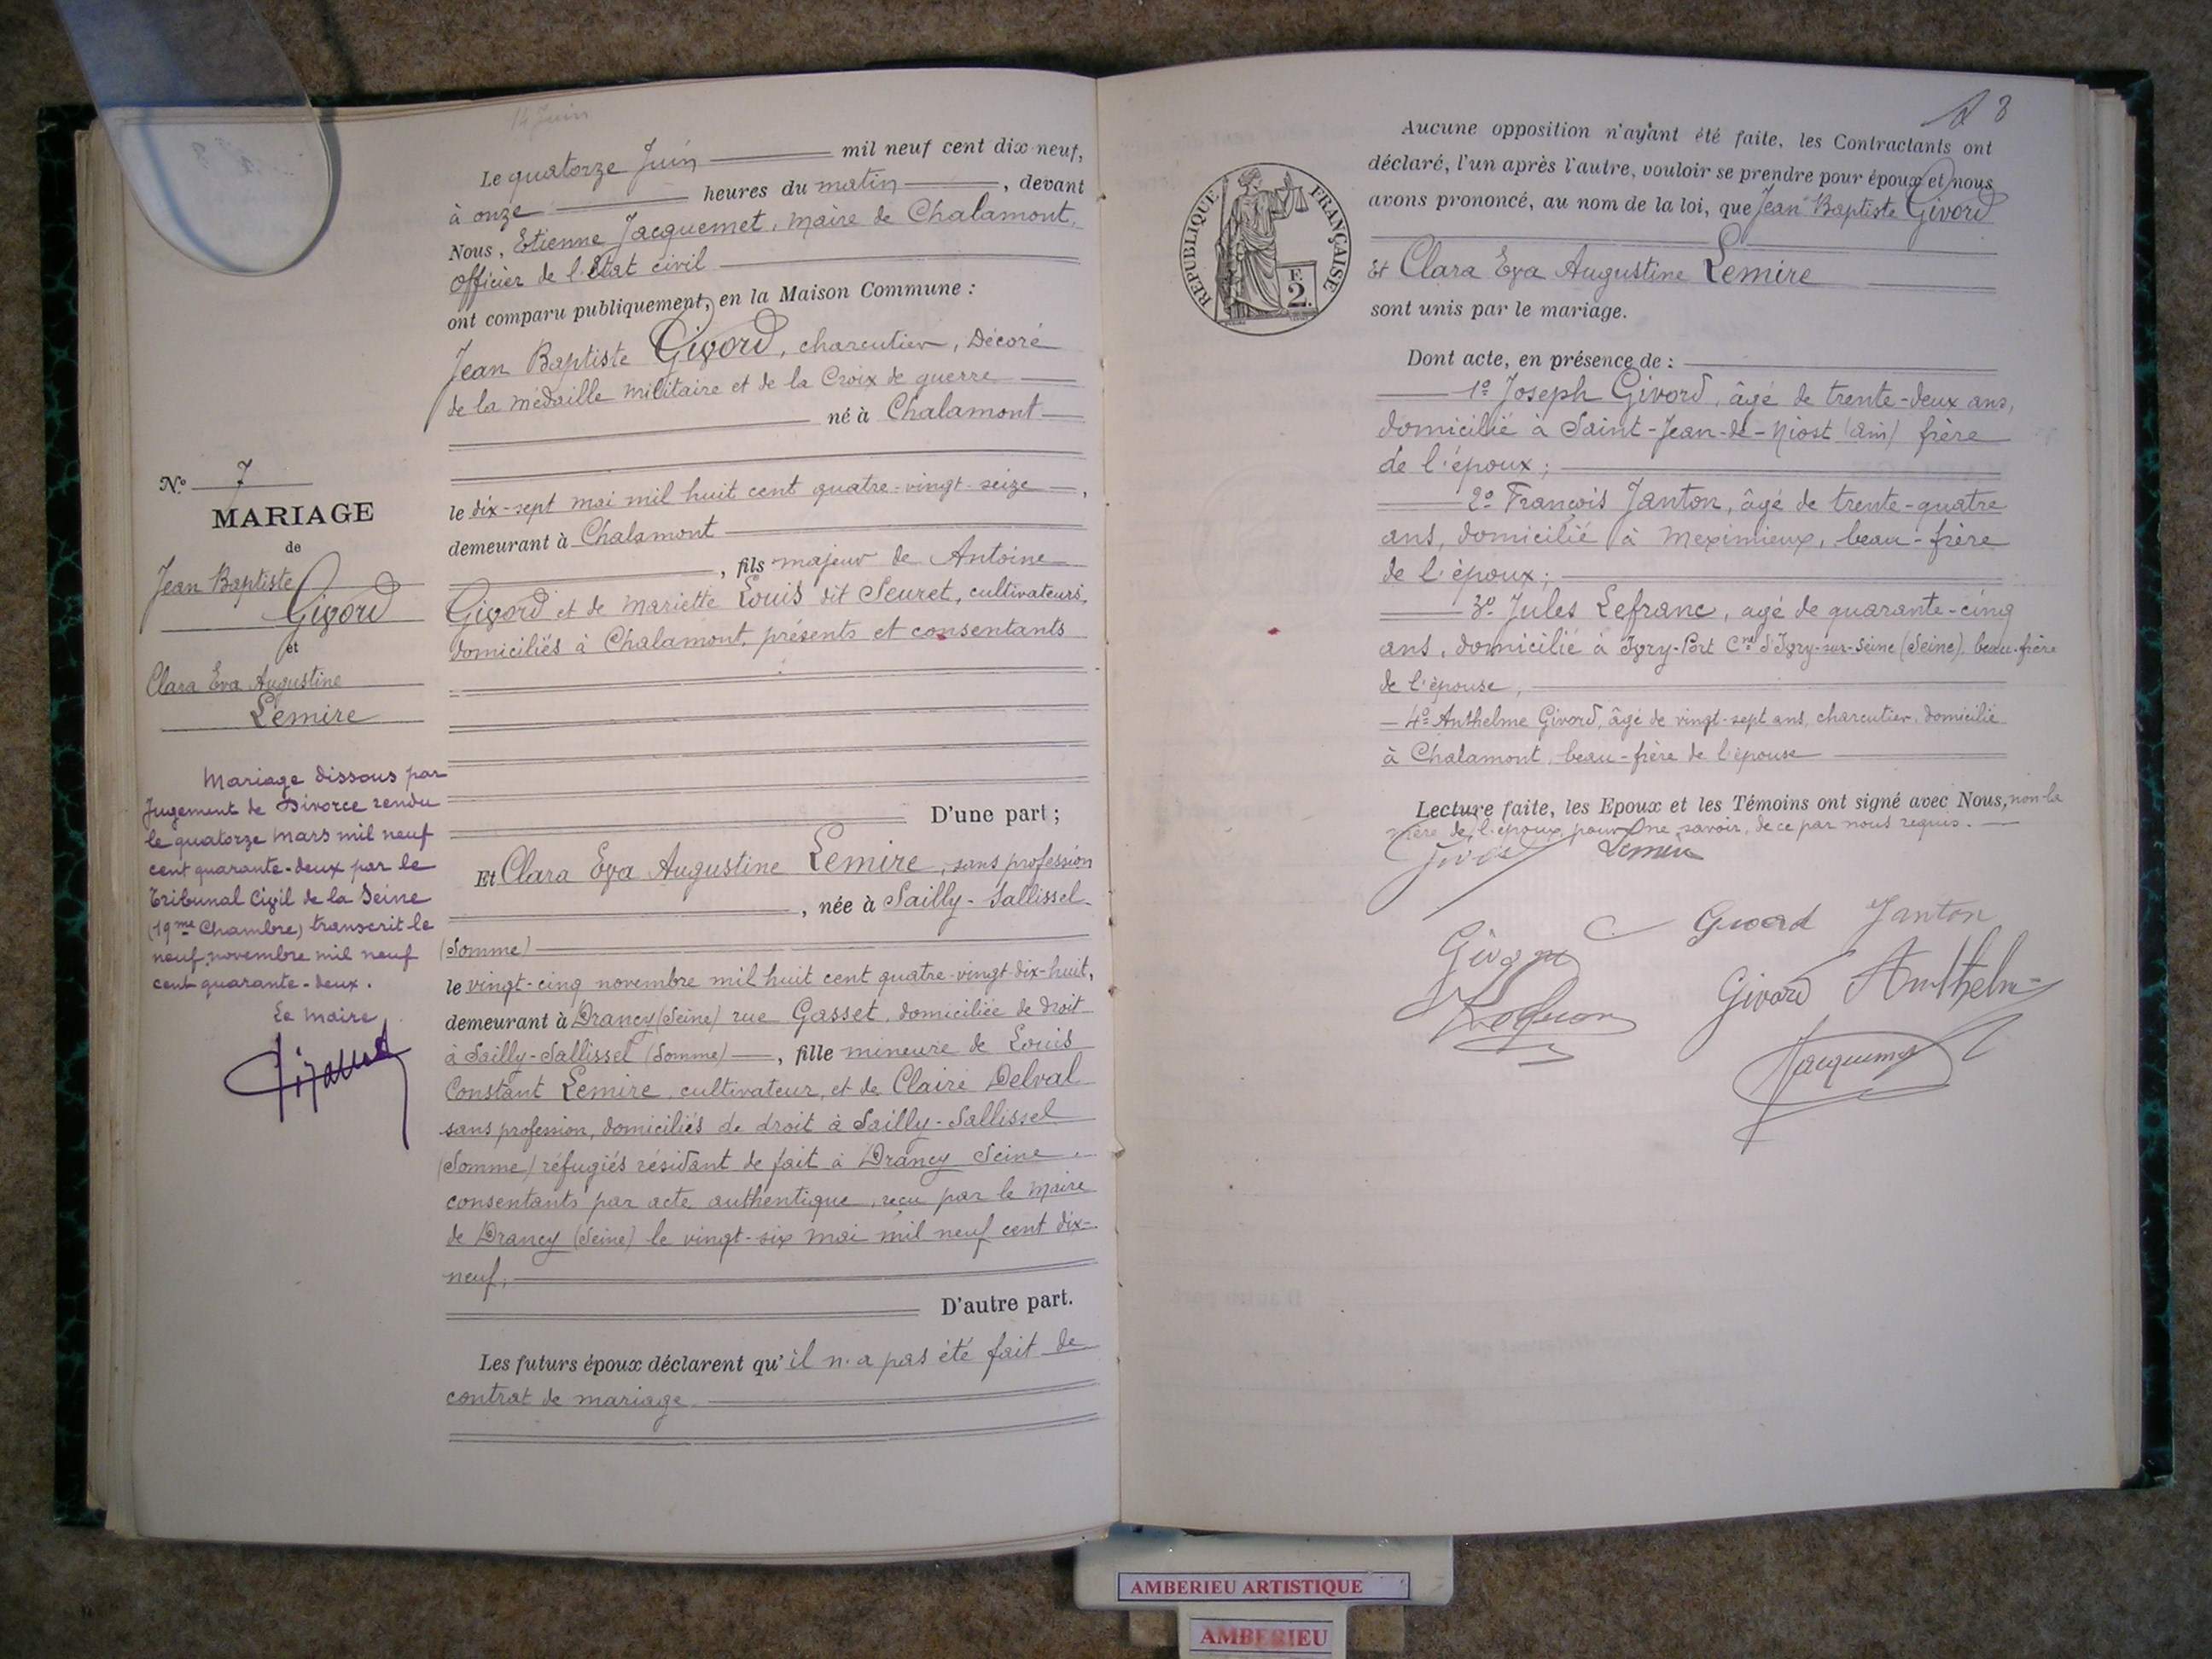 14 Juin
Le quatorze Juin mil neuf cent dix-neuf,
à onze heures du matin, devant
Nous, Etienne Jacquemet, Maire de Chalamont,
officier de l'état civil
ont comparu publiquement, en la Maison Commune :
Jean Baptiste Givord, charcutier, Décoré
de la médaille militaire et de la Croix de guerre
né à Chalamont
le dix-sept mai mil huit cent quatre-vingt-seize,
demeurant à Chalamont
, fils majeur de Antoine
Givord et de Mariette Louis dit Seuret, cultivateurs,
domiciliés à Chalamont, présents et consentants
D'une part ;
Et Clara Eva Augustine Lemire, sans profession
, née à Sailly-Sallissel
(Somme)
le vingt-cinq novembre mil huit cent quatre-vingt-dix-huit,
demeurant à Drancy (Seine) rue Gasset, domiciliée de droit
à Sailly-Sallissel (Somme), fille mineure de Louis
Constant Lemire, cultivateur, et de Claire Delval
sans profession, domiciliés de droit à Sailly-Sallissel
(Somme) réfugiés résidant de fait à Drancy Seine,
consentants par acte authentique, reçu par le Maire
de Drancy (Seine) le vingt-six mai mil neuf cent dix-
neuf,
D'autre part.
Les futurs époux déclarent qu'il n'a pas été fait de
contrat de mariage.
N° 7
MARIAGE
de
Jean Baptiste
Givord
et
Clara Eva Augustine
Lemire
Mariage dissous par
Jugement de Divorce rendu
le quatorze Mars mil neuf
cent quarante-deux par le
Tribunal Civil de la Seine
(19me Chambre) transcrit le
neuf novembre mil neuf
cent quarante-deux.
Le Maire
8
REPUBLIQUE FRANÇAISE
F.
2.
Aucune opposition n'ayant été faite, les Contractants ont
déclaré, l'un après l'autre, vouloir se prendre pour époux et nous
avons prononcé, au nom de la loi, que Jean Baptiste Givord
Et Clara Eva Augustine Lemire
sont unis par le mariage.
Dont acte, en présence de :
1° Joseph Givord, âgé de trente-deux ans,
domicilié à Saint-Jean-de-Niost (Ain) frère
de l'époux ;
2° François Janton, âgé de trente-quatre
ans, domicilié à Meximieux, beau-frère
de l'époux ;
3° Jules Lefranc, agé de quarante-cinq
ans, domicilié à Ivry-Port Cne d'Ivry-sur-Seine (Seine), beau-frère
de l'épouse,
4° Anthelme Givord, âgé de vingt-sept ans, charcutier, domicilié
à Chalamont, beau-frère de l'épouse
Lecture faite, les Epoux et les Témoins ont signé avec Nous, non la
mère de l'époux, pour ne savoir, de ce par nous requis.
Givord Lemire
Givord Janton
Givord
Givord Anthelme
Jacquemet
AMBERIEU ARTISTIQUE
AMBERIEU